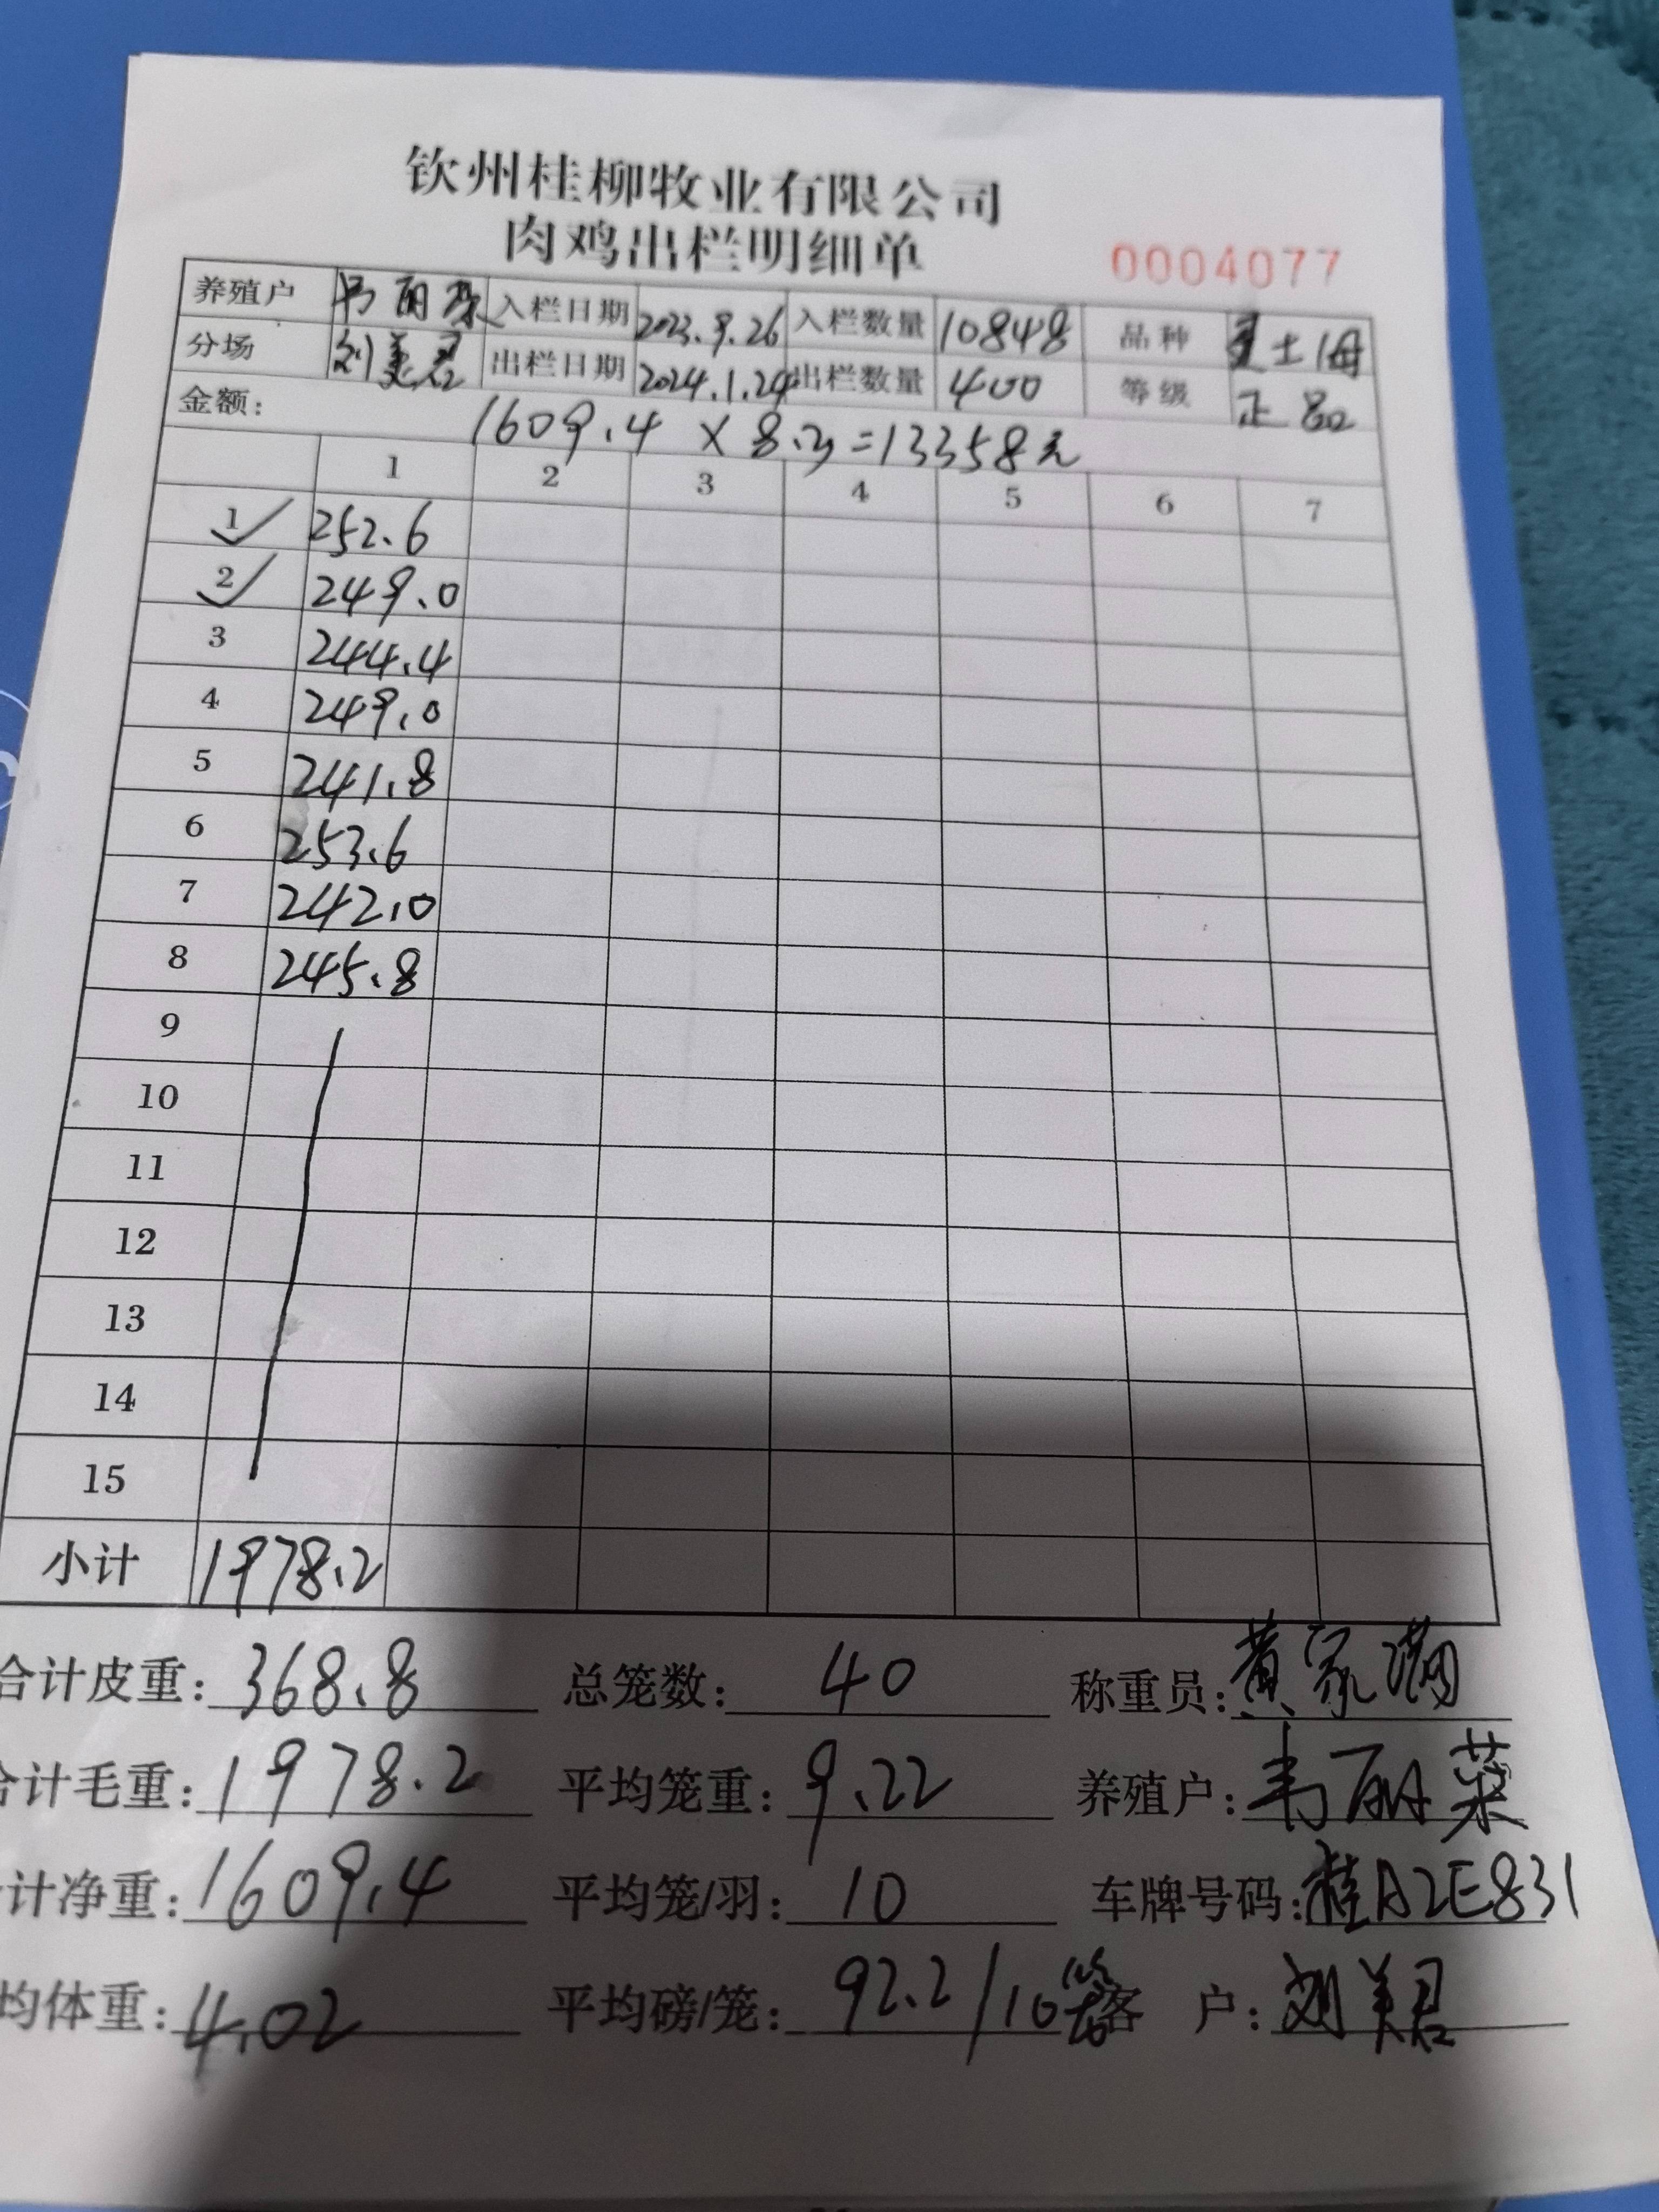 钦州桂柳牧业有限公司
肉鸡出栏明细单
0004077
养殖户 韦丽菜 入栏日期 2023.9.26 入栏数量 10848 品种 土
分场 刘美君 出栏日期 2024.1.24 出栏数量 400 等级 正品
金额: 1609.4 × 8.3=13358元
1 2 3 4 5 6 7
1 252.6
2 249.0
3 244.4
4 249.0
5 241.8
6 253.6
7 242.0
8 245.8
9
10
11
12
13
14
15
小计 1978.2
合计皮重: 368.8 总笼数: 40 称重员: 黄家满
合计毛重: 1978.2 平均笼重: 9.22 养殖户: 韦丽菜
计净重: 1609.4 平均笼/羽: 10 车牌号码: 桂A2E831
均体重: 4.02 平均磅/笼: 92.2/10 客 户: 刘美君